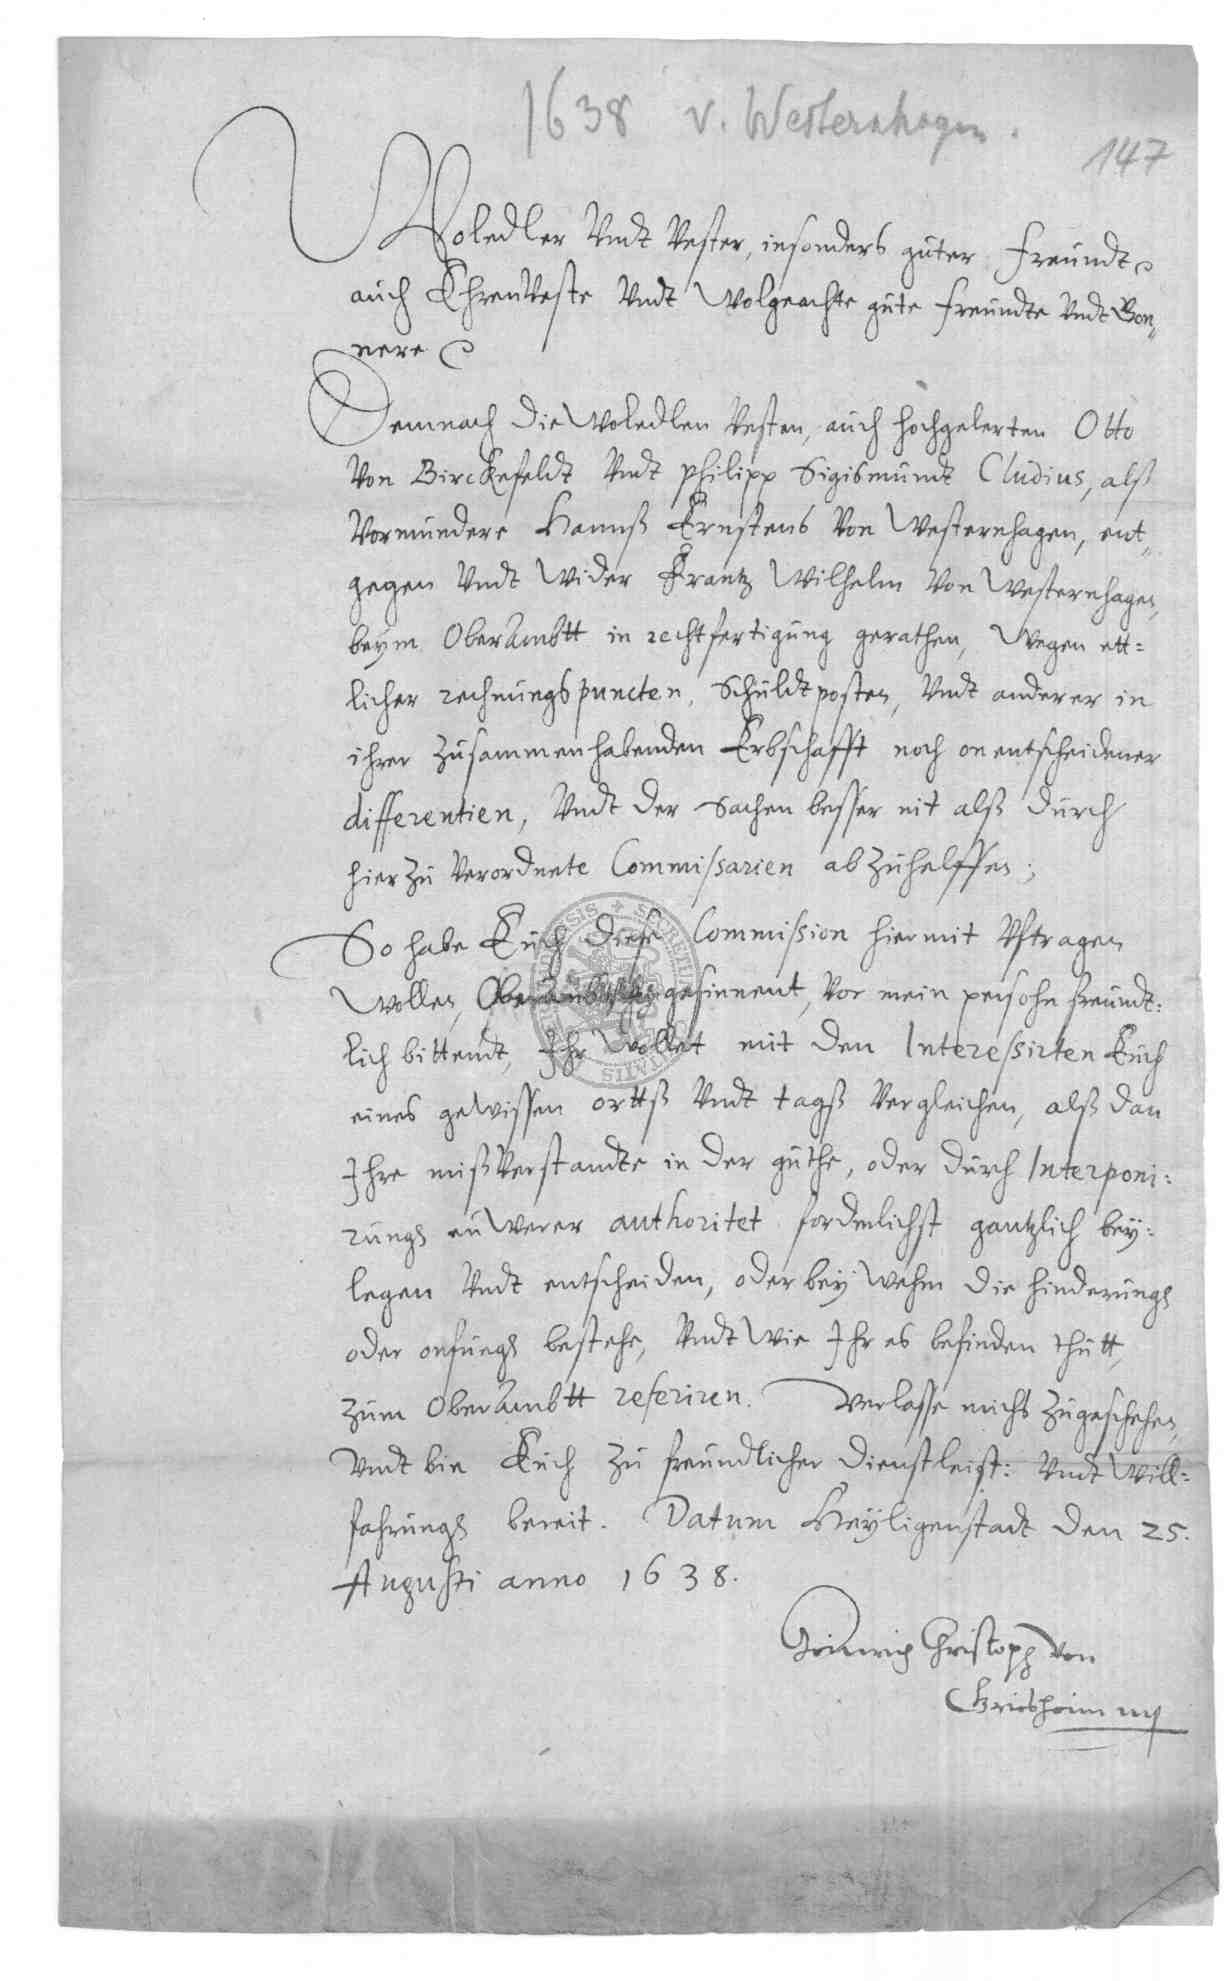 1638 v. Westernhagen.
147
Woledler Vndt Vester, insonders guter Freundt
auch EhrenVeste Vndt Wolgeachte gute freundte Vndt Gön„
nere
Demnach die Woledlen Vesten, auch hochgelerten Otto
Von Birckefeldt Vndt Philipp Sigismundt Cludius, alß
Vormundere Hannß Ernstens Von Westernhagen, ent„
gegen Vndt Wider Frantz Wilhelm Von Westernhagen,
beym OberAmbtt in rechtfertigung gerathen, Wegen ett=
licher rechnungspuncten, Schuldtposten, Vndt anderer in
ihrer Zusammenhabenden Erbschafft noch onentscheidener
differentien, Vndt der Sachen besser nit alß durch
hierZu Verordnete Commißarien abZuhelffen;
So habe Euch diese Commißion hiermit Vftragen
Wollen, OberAmbts gesinnent, Vor mein persohn freundt=
lich bittendt, Ihr Wollet mit den Intereßirten Euch
eines geWissen orttß Vndt tagß Vergleichen, alß dan
Ihre mißVerstandte in der güthe, oder durch Interponi=
rung euWerer authoritet forderlichst gantzlich bey=
legen Vndt entscheiden, oder bey Wehm die hinderung
oder onfueg bestehe, Vndt Wie Ihr es befinden thutt,
Zum OberAmbtt referiren. Verlasse michs Zugeschehen,
Vndt bin Euch Zu freundlicher dienstleist: Vndt Will=
fahrung bereit. Datum Heyligenstadt den 25.
Augusti anno 1638.
Heinrich Christoph von
Griesheim